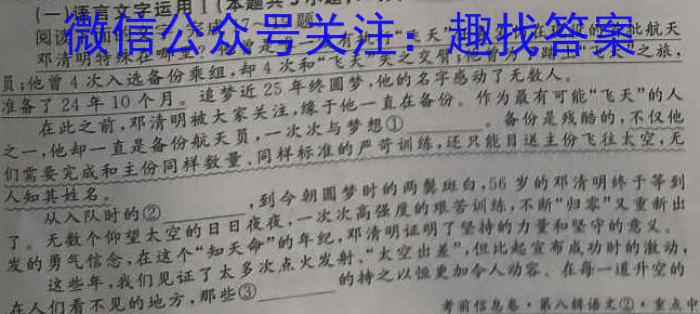 (一)语言文字运用Ⅰ(本题共
微信公众号关注：趣找答案
邓清明特殊在哪里?
员;他曾4次入选备份乘组,却4次和“飞天”失之交臂;他曾为了踏上“飞天”之旅,
准备了24年10个月。追梦近25年终圆梦,他的名字感动了无数人。
在此之前,邓清明被大家关注,缘于他一直在备份。作为最有可能“飞天”的人
之一,他却一直是备份航天员,一次次与梦想①______。备份是残酷的,不仅他
们需要完成和主份同样数量、同样标准的严苛训练,还只能目送主份飞往太空,无
人知其姓名。
从入队时的②______,到今朝圆梦时的两鬓斑白,56岁的邓清明终于等到
了。无数个仰望太空的日日夜夜,一次次高强度的艰苦训练,不断“归零”又重新出
发的勇气信念,在这个“知天命”的年纪,邓清明证明了坚持的力量和坚守的意义。
这些年,我们见证了太多次点火发射、“太空出差”,但比起宣布成功时的激动,
在人们看不见的地方,那些③______的持之以恒更加令人动容。在每一道升空的
考前信息卷·第八辑 语文②·重点中